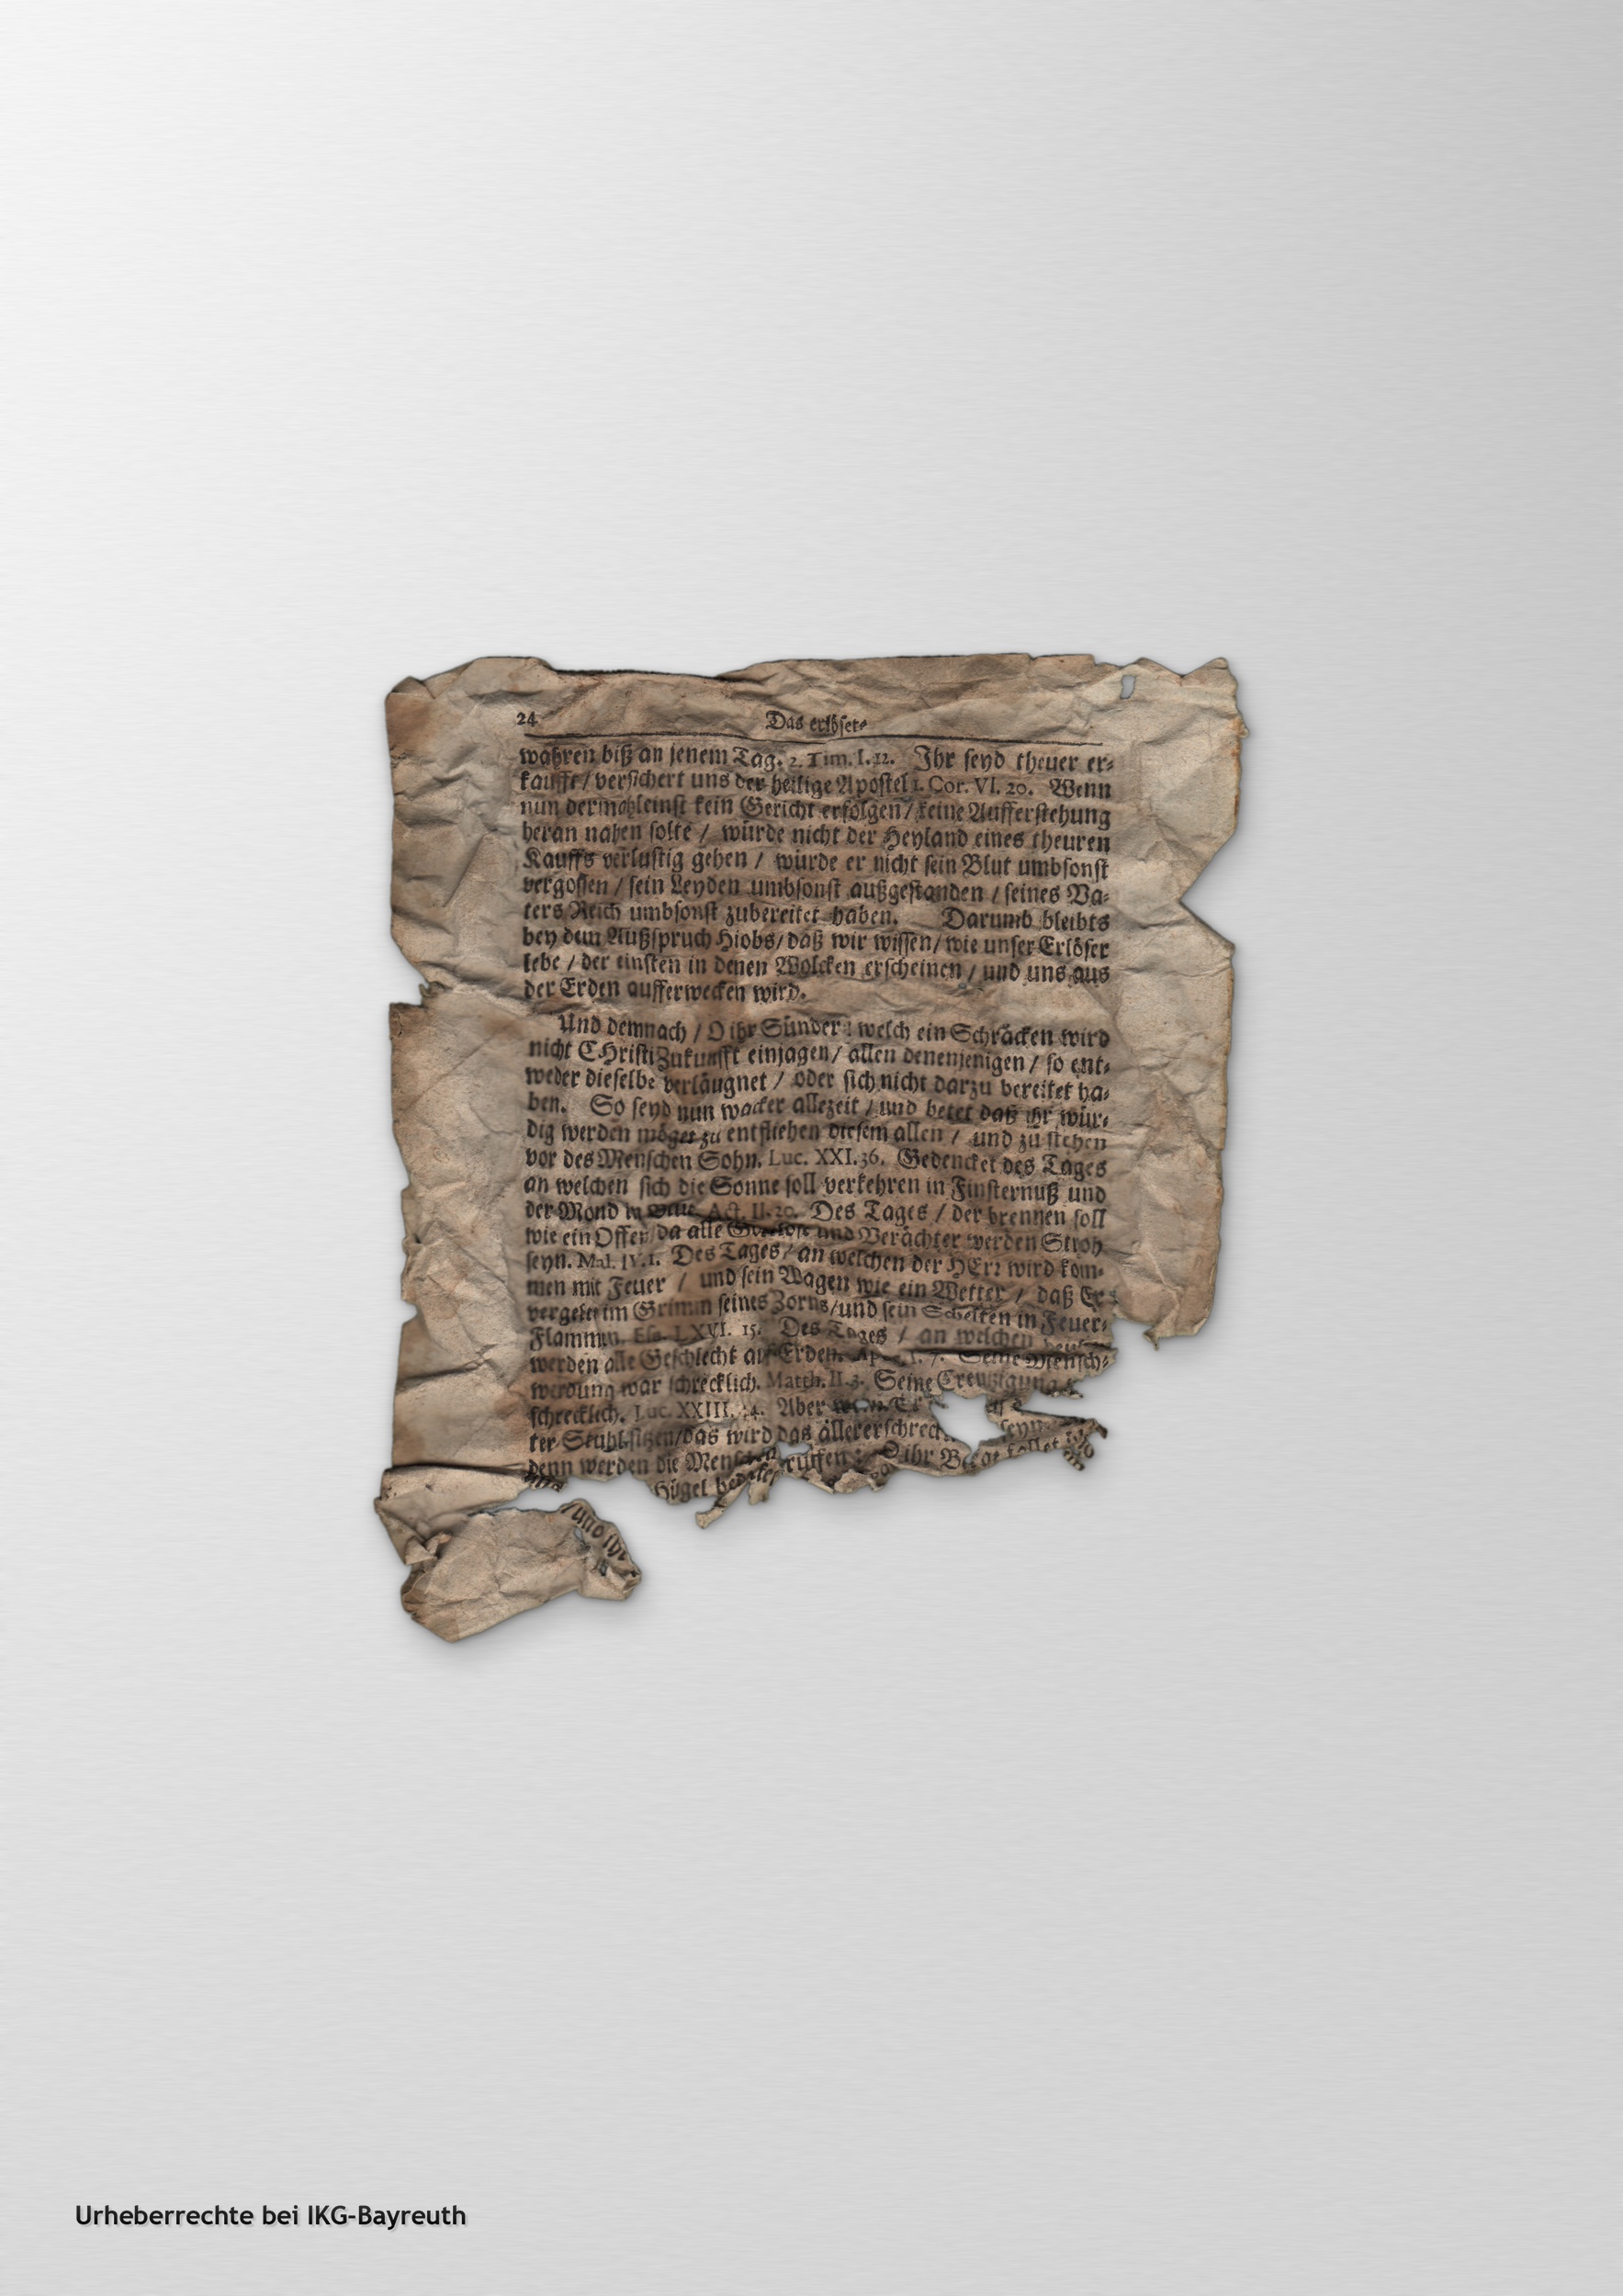 24 Das erlösete
wahren biß an jenem Tag. 2. Tim. I. 12. Ihr seyd theuer er-
kaufft / versichert uns der heilige Apostel 1. Cor. VI. 20. Wenn
nun dermahleinst kein Gericht erfolgen / keine Aufferstehung
heran nahen solte / würde nicht der Heyland eines theuren
Kauffs verlustig gehen / würde er nicht sein Blut umbsonst
vergossen / sein Leyden umbsonst außgestanden / seines Va-
ters Reich umbsonst zubereitet haben. Darumb bleibts
bey dem Außspruch Hiobs / daß wir wissen / wie unser Erlöser
lebe / der einsten in denen Wolcken erscheinen / und uns aus
der Erden aufferwecken wird.
Und demnach / O ihr Sünder! welch ein Schräcken wird
nicht CHristi Zukunfft einjagen / allen denenjenigen / so ent-
weder dieselbe verläugnet / oder sich nicht darzu bereitet ha-
ben. So seyd nun wacker allezeit / und betet daß ihr wür-
dig werden möget zu entfliehen diesem allen / und zu stehen
vor des Menschen Sohn. Luc. XXI. 36. Gedencket des Tages
an welchen sich die Sonne soll verkehren in Finsternuß und
der Mond in Act. II. 20. Des Tages / der brennen soll
wie ein Offen / da alle und Verächter werden Stroh
seyn. Mal. IV. 1. Des Tages / an welchen der HErr wird kom-
men mit Feuer / und sein Wagen wie ein Wetter / daß Er
vergelte im Grimm seines Zorns / und sein Schelten in Feuer-
Flammen. Esa. LXVI. 15. Des Tages / an welchen
werden alle Geschlecht auf Erden. I. 7. Seine Mensch-
werdung war schrecklich. Matth. II. 3. Seine Creutzigung
schrecklich. Luc. XXIII. Aber
ter Stuhl sitzen / das wird das allererschreck seyn
denn werden die ruffen: O ihr fallet
Hügel
/ und ihr
Urheberrechte bei IKG-Bayreuth